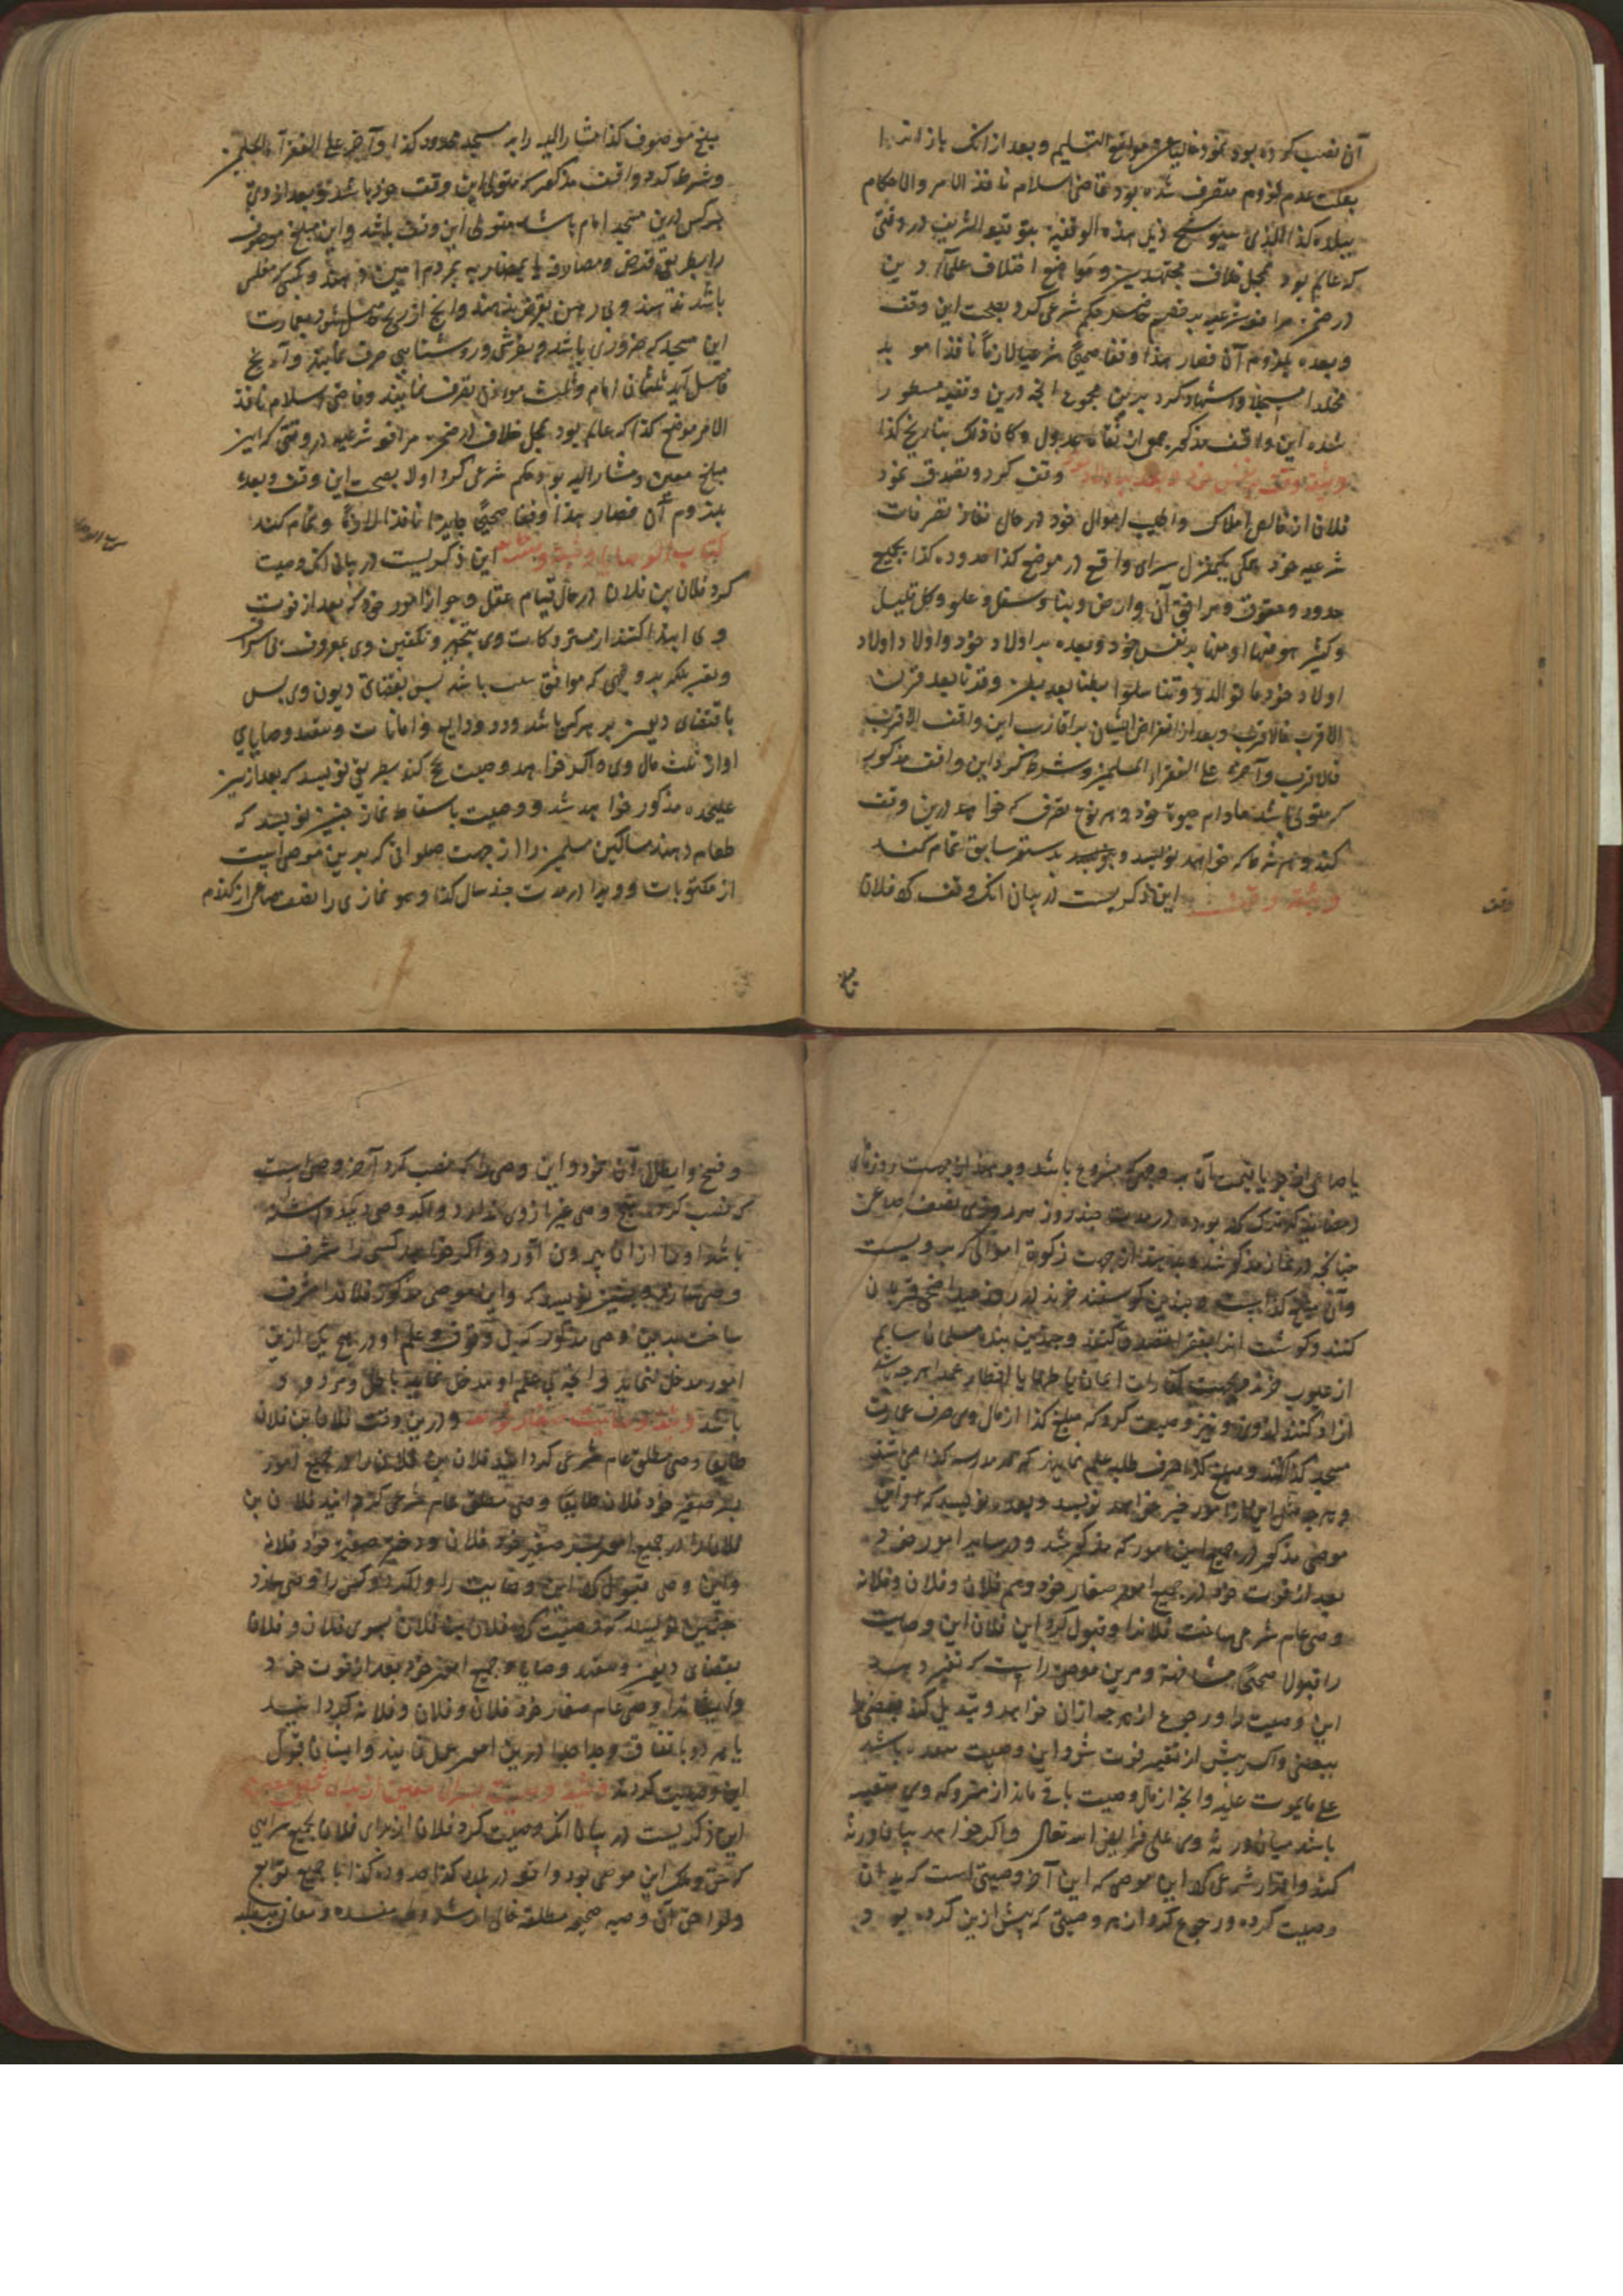 آن نصب کرده بود نمود خالیا عن موانع التسلیم و بعد از انک باز
بعلت عدم لزوم متصرف شده بود قاضی اسلام نافذ الامر والاحکام
ببلده کذا الذی سیوشح ذیل هذه الوقفیة بتوقیعه الشریف در وقتی
که عالم بود بمحل خلاف مجتهدین و مواضع اختلاف علماء دین
در ضمن مرافعه شرعیه حکم شرعی کرد بصحت این وقف
و بعده بلزوم آن فصار هذا وقفا صحیحا شرعیا لازما نافذا مؤبد
مخلدا مسجلا و استشهاد کرد برین مجموع انچه درین وقفیه مسطور
شده این واقف مذکور جمعی از ثقات عدول و کان ذلک بتاریخ کذا
وثیقه وقف بر نفس خود وقف کرد و تصدق نمود
فلان از خالص املاک و اطیب اموال خود در حال نفاذ تصرفات
شرعیه خود همکی یکمنزل سرای واقع در موضع کذا محدوده کذا بجمیع
حدود و حقوق و مرافق آن و ارض و بنا و سفل و علو و کل قلیل
و کثیر هو فیها او منها بر نفس خود و بعده بر اولاد خود و اولاد اولاد
اولاد خود ما توالدوا و تناسلوا بطنا بعد بطن و قرنا بعد قرن
الاقرب فالاقرب و بعد از انقراض ایشان بر اقارب این واقف الاقرب
فالاقرب و آخره علی الفقراء المسلمین و شرط کرد این واقف مذکور
که متولی باشد مادام حیوة خود و هر نوع تصرف که خواهد درین وقف
کند و هر شرط که خواهد نویسد و بدستور سابق تمام کند
وثیقه وقف این ذکریست در بیان انک وقف کرد فلان
وقف
مبلغ
مبلغ موصوف کذا مشار الیه را به مسجد محدود کذا و آخره علی الفقراء المسلمین
و شرط کرد واقف مذکور که متولی این وقف خود باشد و بعد از وی
هر کس درین مسجد امام باشد متولی این وقف باشد و این مبلغ موصوف
را بطریق قرض و مصادقه یا بمضاربه بمردم امین دهند و بکسی که مفلس
باشد ندهند و بی رهن بقرض ندهند و انچ از ربح حاصل شود بعمارت
این مسجد که ضروری باشد و بفرش و روشنایی صرف نمایند و آنچ
فاضل آید ثلثان امام و ثلث موذن تصرف نمایند و قاضی اسلام نافذ
الامر موضع کذا که عالم بود بمحل خلاف در ضمن مرافعه شرعیه در وقتی که این
مبلغ معین و مشار الیه بود حکم شرعی کرد اولا بصحت این وقف و بعده
بلزوم آن فصار هذا وقفا صحیحا جایزا نافذا لازما و تمام کنند
کتاب الوصایا این ذکریست در بیان انک وصیت
کرد فلان بن فلان در حال قیام عقل و جواز امور خود که بعد از فوت
وی ابتدا کنند از متروکات وی بتجهیز و تکفین وی بمعروف بی اسراف
و تقتیر بلکه بر وجهی که موافق سنت باشد پس بقضای دیون وی پس
باقتضای دیون بر هر کس باشد و رد ودایع و امانات و تنفیذ وصایای
او از ثلث مال وی و اکر خواهد وصیت حج کند بطریق نویسد که بعد ازین
علیحده مذکور خواهد شد و وصیت باسقاط نماز چنین نویسد که
طعام دهند مساکین مسلمین را از جهت صلواتی که برین موصی است
از مکتوبات و وترها در مدت چند سال کذا و هر نمازی را نصف صاع از کندم
یا صاعی از جو یا قیمت آن بر وجهی که مشروع باشد و بدهند از جهت روزهای
رمضان که ترک کرده بوده در مدت چند روز هر روزی نصف صاع
چنانچه در نماز مذکور شد و بدهند از جهت زکوة اموالی که بر ویست
و آن مبلغ کذا است و چندین کوسفند خرند در روز عید اضحی قربان
کنند و کوشت انرا بفقرا تصدق کنند و چندین بنده مسلمان سالم
از عیوب خرند و بجهت کفارات ایمان یا ظهار یا افطار عمدا هر چه باشد
ازاد کنند از وی و نیز وصیت کرد که مبلغ کذا از مال وی صرف عمارت
مسجد کذا کنند و مبلغ کذا صرف طلبه علم نمایند که در مدرسه کذا می باشند
و هر چه مثل این از امور خیر خواهد نویسد و بعده نویسد که و این
موصی مذکور در جمیع این امور که مذکور شد و در سایر امور خود
بعد از فوت خود در جمیع امور صغار خود و هم فلان و فلان و فلانه
وصی عام شرعی ساخت فلانرا و قبول کرد این فلان این وصایت
را قبولا صحیحا مشافهة و مرین موصی راست که تغیر دهد
این وصیت را و رجوع از هر چه ازان خواهد و تبدیل کند بعضی را
ببعضی و اکر پیش از تغیر فوت شود این وصیت منعقد باشد
علی ما یموت علیه و انچه از مال وصیت باقی ماند از متروکه وی منقسم
باشد میان ورثه وی علی فرایض الله تعالی و اکر خواهد بیان ورثه
کند و اقرار شرعی کرد این موصی که این آخر وصیتی است که بدان
وصیت کرده و رجوع کرد از هر وصیتی که پیش ازین کرده بود
و فسخ و ابطال آن نمود و این وصی را که نصب کرد آخر وصی است
که نصب کرد و هیچ وصی غیر از وی ندارد و اکر وصی دیکر داشته
باشد او را ازان بیرون آورد و اکر خواهد کسی را مشرف
وصی سازد چنین نویسد که و این موصی مذکور فلانرا مشرف
ساخت بدین وصی مذکور که بی وقوف و علم او در هیچ یکی ازین
امور مدخل ننماید و انچه بی علم او مدخل نماید باطل و مردود
باشد وثیقه وصایت صغار و درین وقت فلان بن فلان
طایعا وصی مطلق عام شرعی کردانید فلان بن فلان را در جمیع امور
پسر صغیر خود فلان طایعا وصی مطلق عام شرعی کردانید فلان بن
فلانرا در جمیع امور پسر صغیر خود فلان و دختر صغیره خود فلانه
و این وصی قبول کرد این وصایت را و اکر دو کس را وصی سازد
چنین نویسد که وصیت کرد فلان بن فلان بسوی فلان و فلان
بقضای دیون و تنفیذ وصایا و جمیع امور خود بعد از فوت خود
و ایشانرا وصی عام صغار خود فلان و فلان و فلانه کردانید
یا هر دو باتفاق و جدا جدا درین امور عمل نمایند و ایشان قبول
این وصیت کردند وثیقه وصیت
این ذکریست در بیان انک وصیت کرد فلان از برای فلان بجمیع سرایی
که حق و ملک این موصی بود واقع در بلده کذا محدوده کذا با جمیع توابع
و لواحق آن وصیه صحیحه مطلقه خالی از شروط مفسده و معانی مبطله